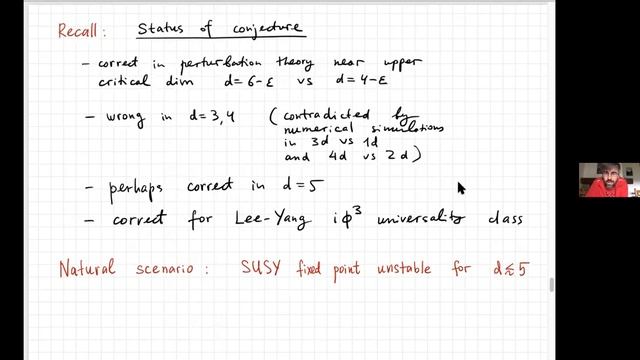 Recall: Status of conjecture
- correct in perturbation theory near upper
critical dim d=6-ε vs d=4-ε
- wrong in d=3,4 (contradicted by
numerical simulations
in 3d vs 1d
and 4d vs 2d)
- perhaps correct in d=5
- correct for Lee-Yang iϕ³ universality class
Natural scenario: SUSY fixed point unstable for d≲5